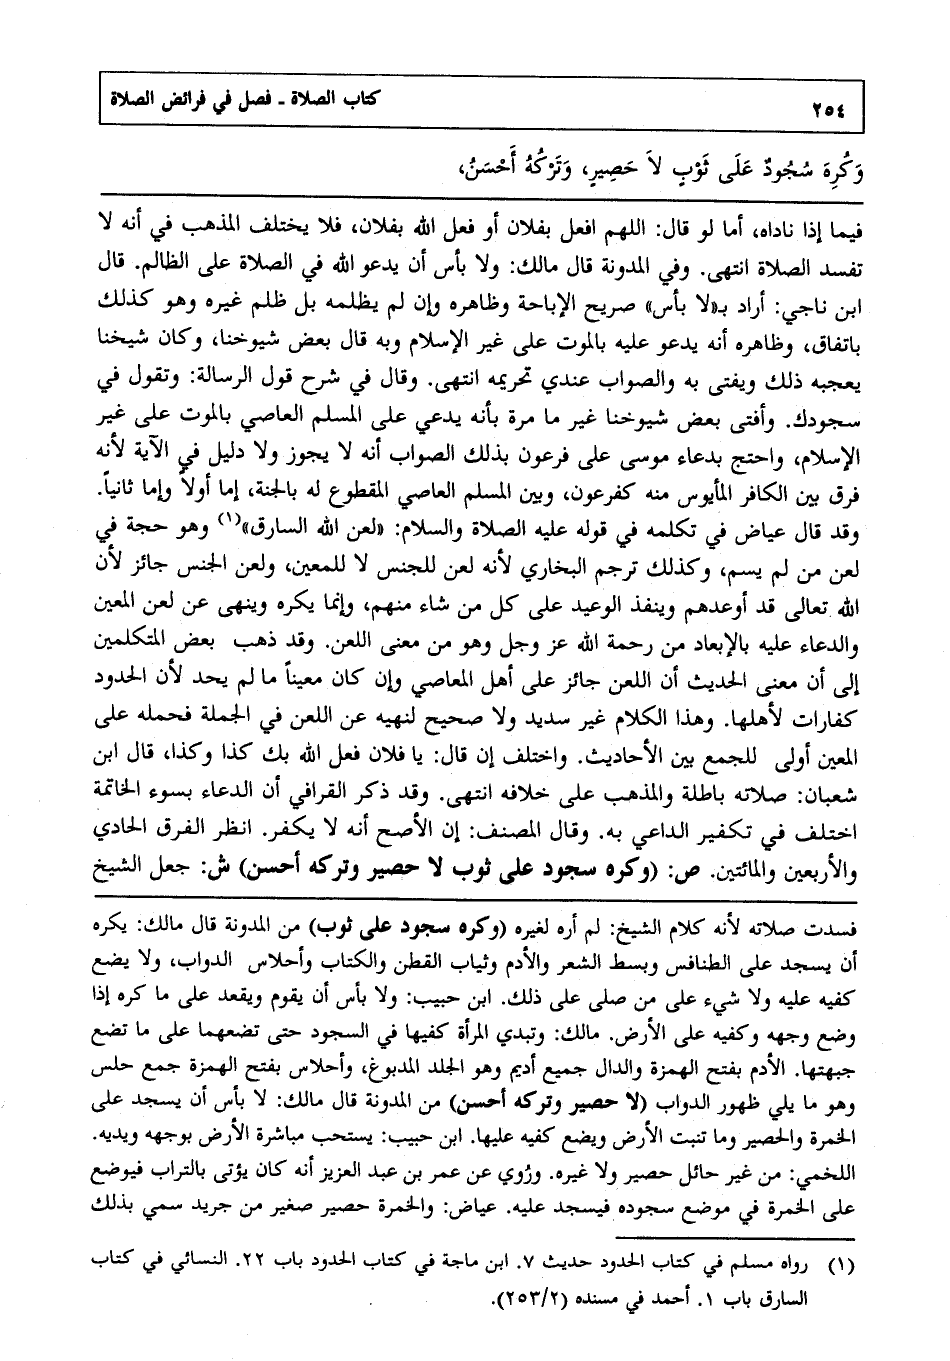 ٢٥٤ كتاب الصلاة ـ فصل في فرائض الصلاة
وَكُرِهَ سُجُودٌ عَلَى ثَوْبٍ لاَ حَصِيرٍ، وَتَرْكُهُ أَحْسَنُ،
فيما إذا ناداه، أما لو قال: اللهم افعل بفلان أو فعل الله بفلان، فلا يختلف المذهب في أنه لا
تفسد الصلاة انتهى. وفي المدونة قال مالك: ولا بأس أن يدعو الله في الصلاة على الظالم. قال
ابن ناجي: أراد بـ«لا بأس» صريح الإباحة وظاهره وإن لم يظلمه بل ظلم غيره وهو كذلك
باتفاق، وظاهره أنه يدعو عليه بالموت على غير الإسلام وبه قال بعض شيوخنا، وكان شيخنا
يعجبه ذلك ويفتى به والصواب عندي تحريمه انتهى. وقال في شرح قول الرسالة: وتقول في
سجودك. وأفتى بعض شيوخنا غير ما مرة بأنه يدعي على المسلم العاصي بالموت على غير
الإسلام، واحتج بدعاء موسى على فرعون بذلك الصواب أنه لا يجوز ولا دليل في الآية لأنه
فرق بين الكافر المأيوس منه كفرعون، وبين المسلم العاصي المقطوع له بالجنة، إما أولاً وإما ثانياً.
وقد قال عياض في تكلمه في قوله عليه الصلاة والسلام: «لعن الله السارق»(١) وهو حجة في
لعن من لم يسم، وكذلك ترجم البخاري لأنه لعن للجنس لا للمعين، ولعن الجنس جائز لأن
الله تعالى قد أوعدهم وينفذ الوعيد على كل من شاء منهم، وإنما يكره وينهى عن لعن المعين
والدعاء عليه بالإبعاد من رحمة الله عز وجل وهو من معنى اللعن. وقد ذهب بعض المتكلمين
إلى أن معنى الحديث أن اللعن جائز على أهل المعاصي وإن كان معيناً ما لم يحد لأن الحدود
كفارات لأهلها. وهذا الكلام غير سديد ولا صحيح لنهيه عن اللعن في الجملة فحمله على
المعين أولى للجمع بين الأحاديث. واختلف إن قال: يا فلان فعل الله بك كذا وكذا، قال ابن
شعبان: صلاته باطلة والمذهب على خلافه انتهى. وقد ذكر القرافي أن الدعاء بسوء الخاتمة
اختلف في تكفير الداعي به. وقال المصنف: إن الأصح أنه لا يكفر. انظر الفرق الحادي
والأربعين والمائتين. ص: (وكره سجود على ثوب لا حصير وتركه أحسن) ش: جعل الشيخ
فسدت صلاته لأنه كلام الشيخ: لم أره لغيره (وكره سجود على ثوب) من المدونة قال مالك: يكره
أن يسجد على الطنافس وبسط الشعر والأدم وثياب القطن والكتاب وأحلاس الدواب، ولا يضع
كفيه عليه ولا شيء على من صلى على ذلك. ابن حبيب: ولا بأس أن يقوم ويقعد على ما كره إذا
وضع وجهه وكفيه على الأرض. مالك: وتبدي المرأة كفيها في السجود حتى تضعهما على ما تضع
جبهتها. الأدم بفتح الهمزة والدال جميع أديم وهو الجلد المدبوغ، وأحلاس بفتح الهمزة جمع حلس
وهو ما يلي ظهور الدواب (لا حصير وتركه أحسن) من المدونة قال مالك: لا بأس أن يسجد على
الخمرة والحصير وما تنبت الأرض ويضع كفيه عليها. ابن حبيب: يستحب مباشرة الأرض بوجهه ويديه.
اللخمي: من غير حائل حصير ولا غيره. ورُوي عن عمر بن عبد العزيز أنه كان يؤتى بالتراب فيوضع
على الخمرة في موضع سجوده فيسجد عليه. عياض: والخمرة حصير صغير من جريد سمي بذلك
(١) رواه مسلم في كتاب الحدود حديث ٧. ابن ماجة في كتاب الحدود باب ٢٢. النسائي في كتاب
السارق باب ١. أحمد في مسنده (٢/٢٥٣).